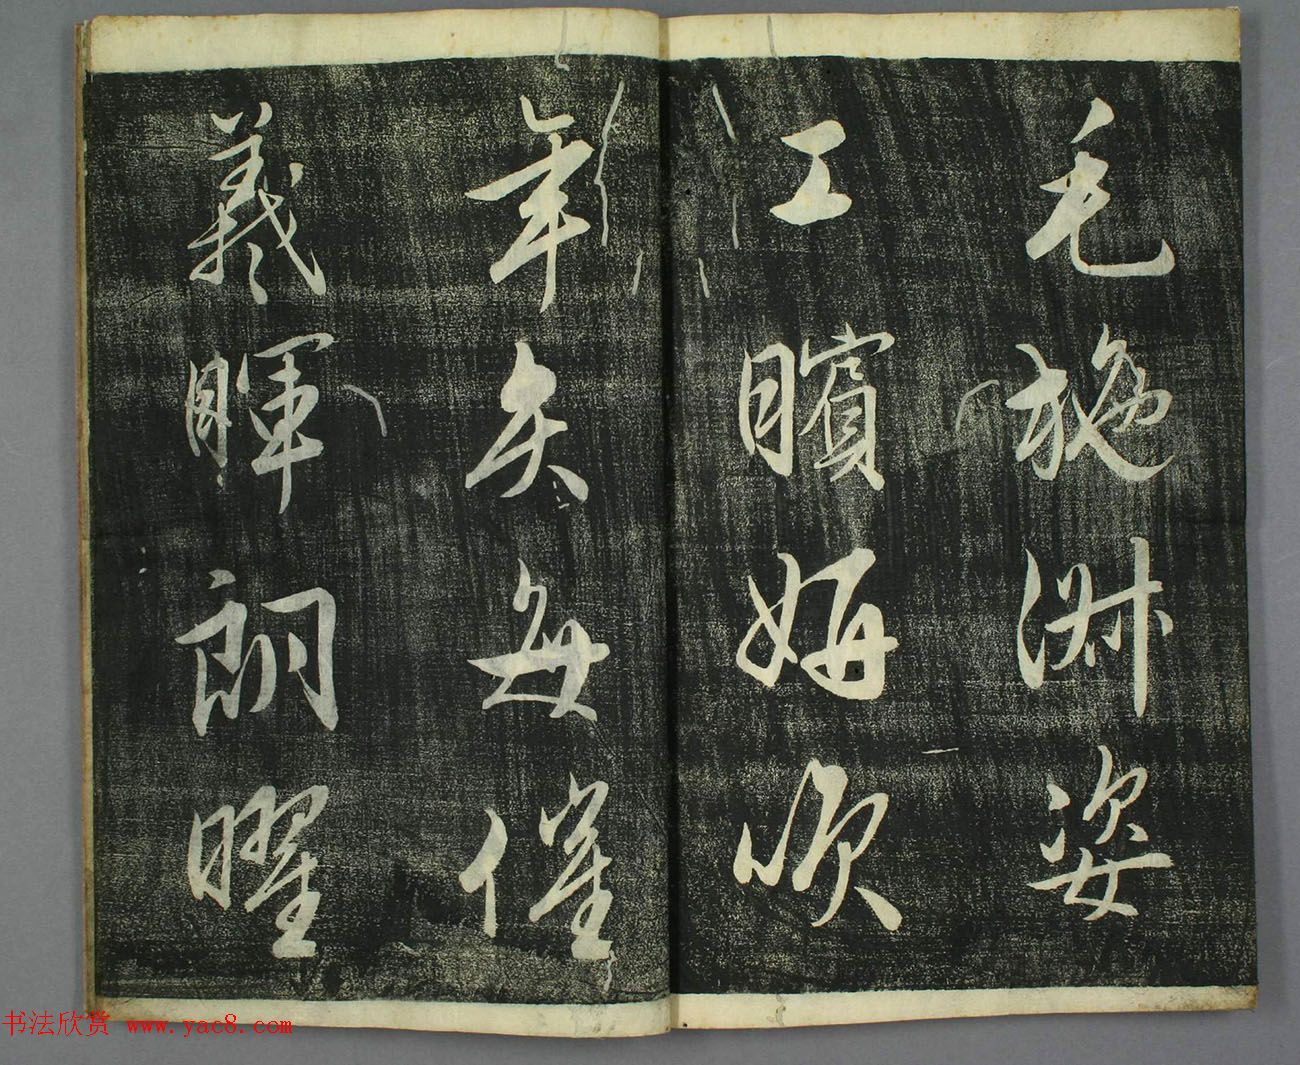 毛施淑姿
工矉妍㳙
年矢每催
羲暉朗曜
书法欣赏 www.yac8.com